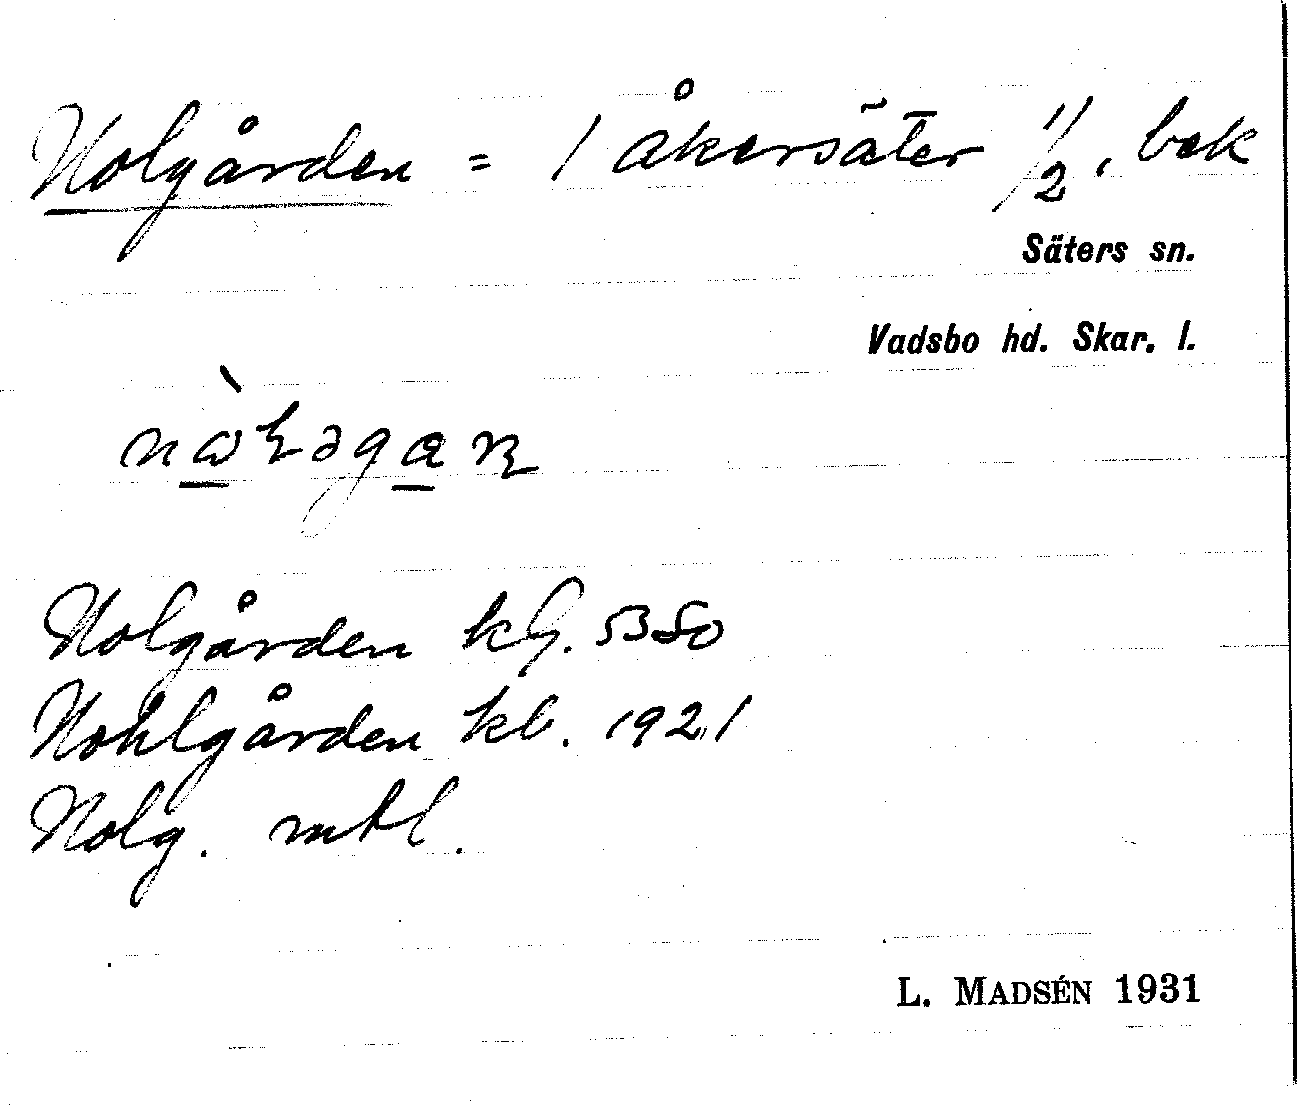 Nolgården = 1 Åkersäter 1/2, bek
Säters sn.
Vadsbo hd. Skar. l.
Nolgården kG. 5350
Nohlgården kb. 1921
Nolg. mtl.
L. MADSÉN 1931